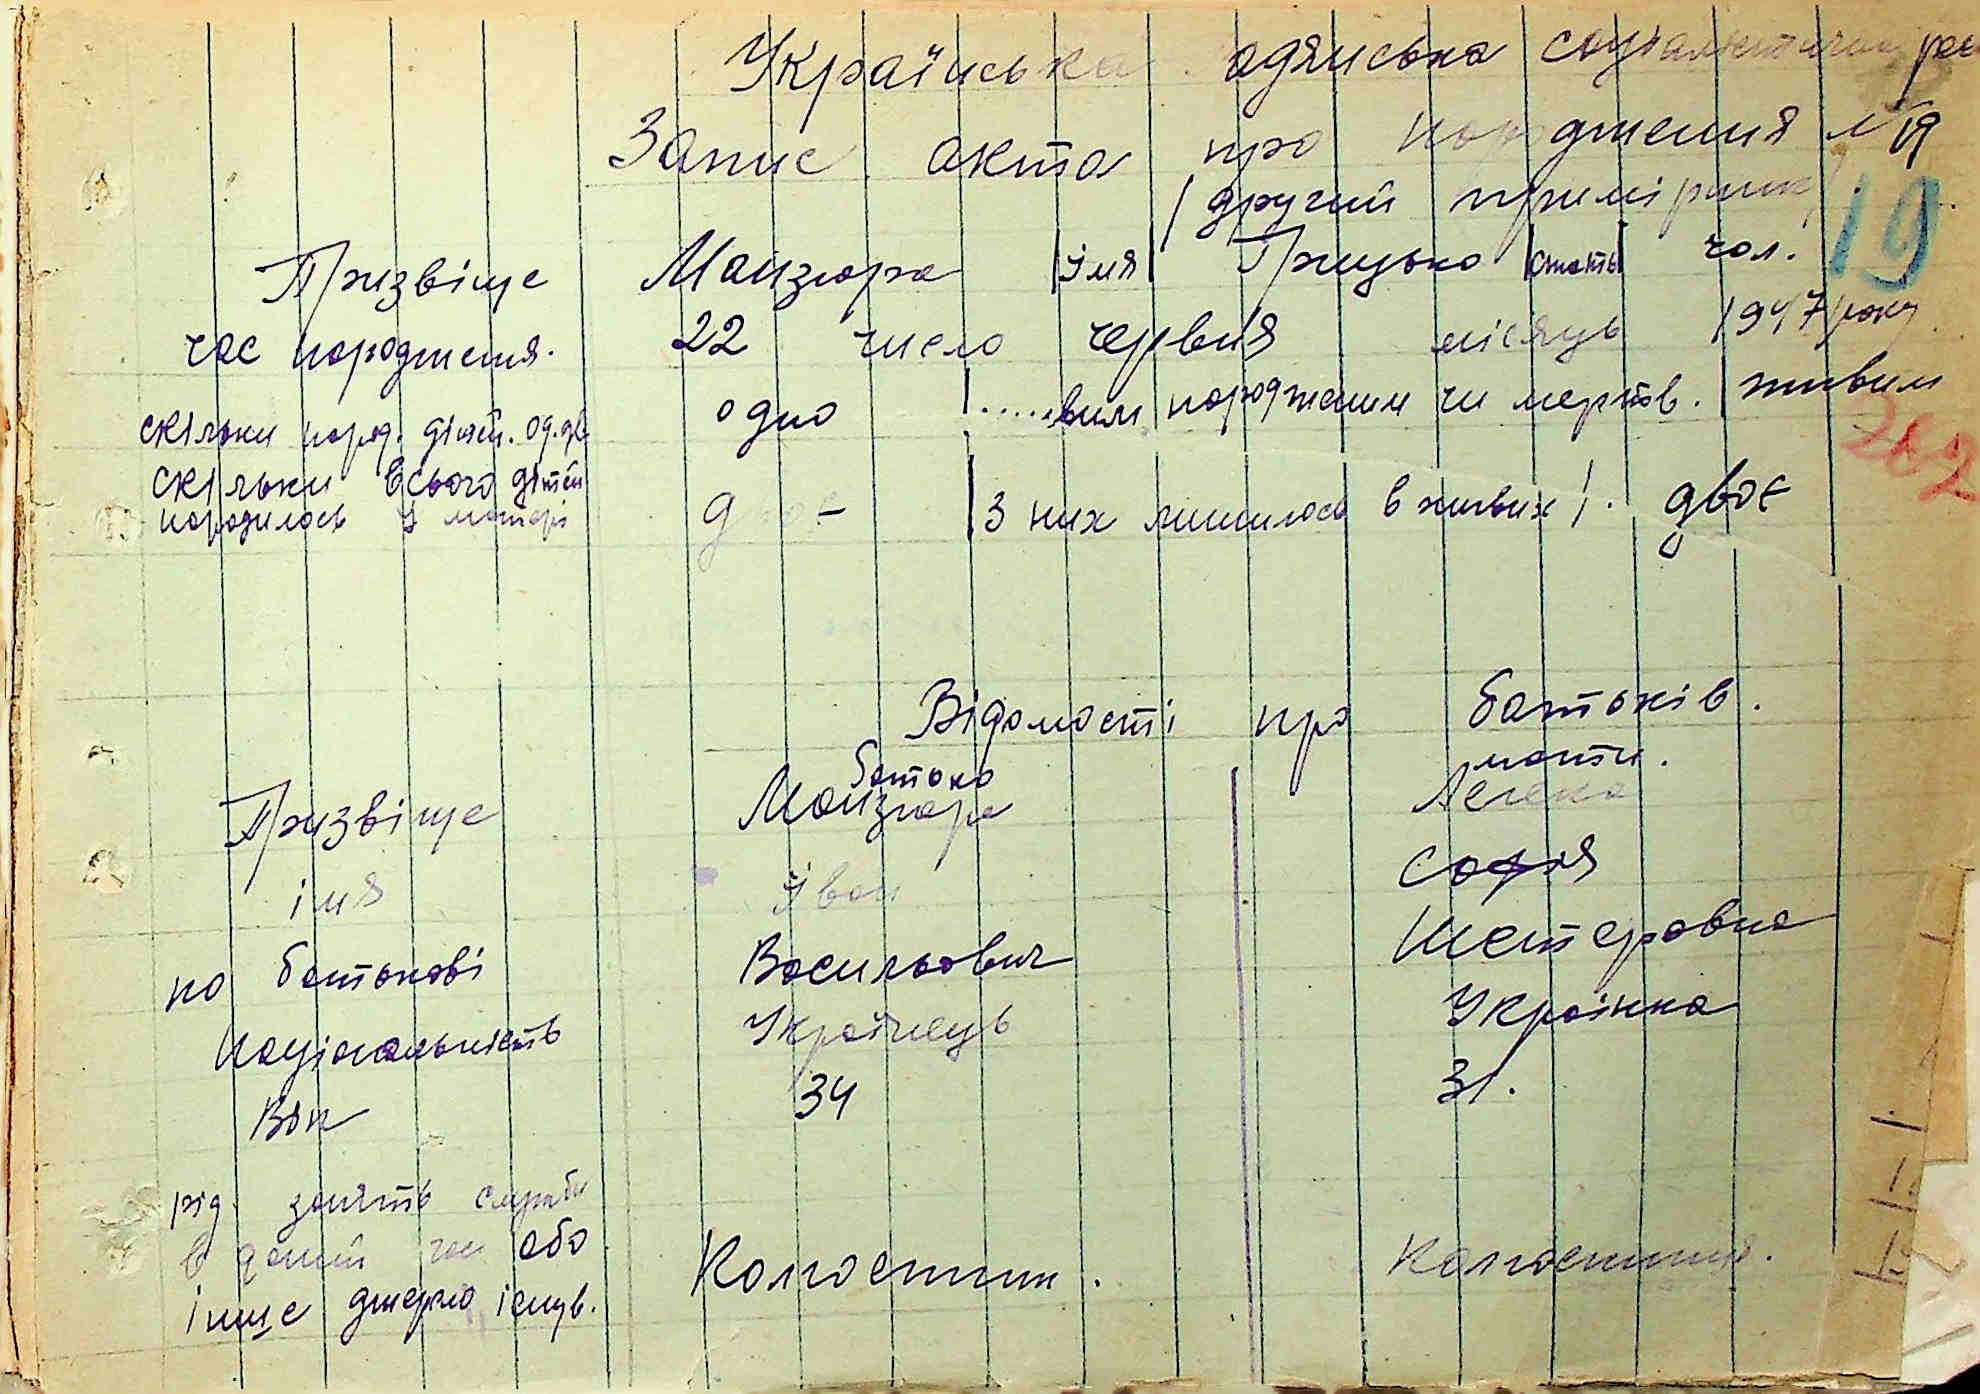 Українська адянська соціалістична рес
Запис акта про породження № 19
/другий примірник/.
19
Призвіще Майзюра /імя/ Грицько /стать/ чол.
час породження. 22 число червня місяць 1947 року
скільки пород. дітей. од. дв одно /.....вим породженим чи мертв. / живим
262
скільки всього дітей
породилось у матері двоє /з них лишилось в живих/. двоє
Відомості про батьків.
батько мати.
Призвіще Майзюра Легека
імя Іван Софія
по батькові Васильович Нестеровна
Національність Українець Українка
Вік 34 31.
рід занять служби
в даний час або
інше джерло існув. Колгоспник. Колгоспниця.